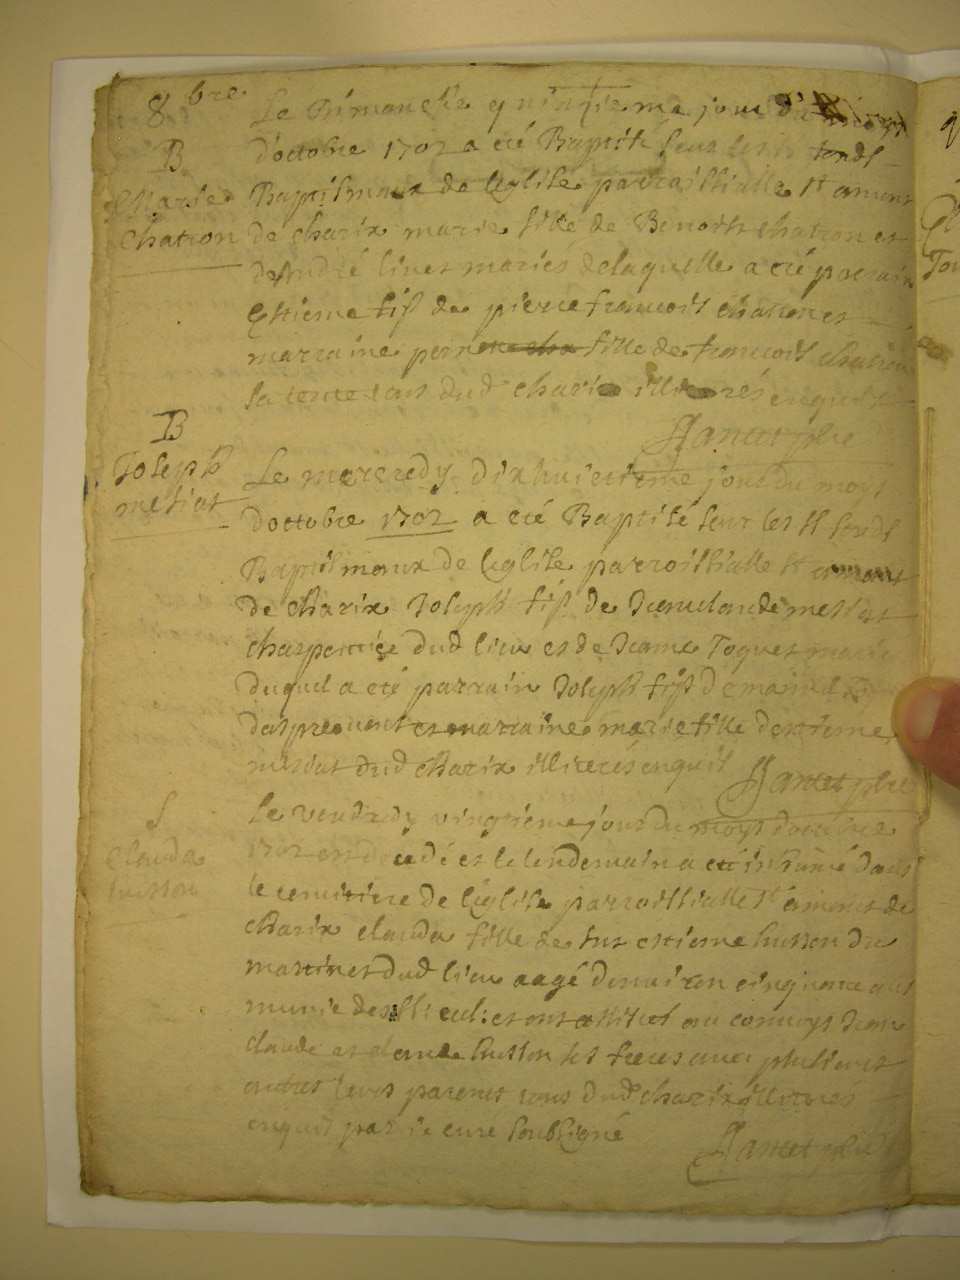 8bre
Le Dimanche quinzieme jour
B
d'octobre 1702 a eté Baptisé sur les fonds
Marie
Baptismaux de leglise parroissialle St amant
Chatron
de charix marie fille de Benoist chatron et
de André livet mariés de laquelle a eté parrain
Estieme fils de pierre francois chatron et
marraine pernette cha fille de francois chatron
tous dud charix illiterés enquis
Jantet pbre
B
Joseph
mesiat
Le mercredy dixhuictieme jour du moys
doctobre 1702 a eté Baptisé sur les St fonds
Baptismaux de leglise parroissialle St amant
de charix Joseph fils de Jean claude mesiat
charpentier dud lieu et de Jeanne Toquet mariés
duquel a eté parrain Joseph fils
et marraine marie fille destieme
mesiat dud charix illiterés enquis Jantet pbre
S
Clauda
husson
Le vendredy vingtieme jour du moys doctobre
1702 est decedé et le lendemain a eté inhumé dans
le cemitiere de leglise parroissialle St amant de
charix clauda fille de fut estieme husson du
martinet dud lieu aagé denviron cinquante ans
munie des St et ont assisté au convoys Jean
claude et claude husson ses freres avec plusieurs
autres leurs parents tous dud charix illiterés
enquis par ie curé soubsigné
Jantet pbre